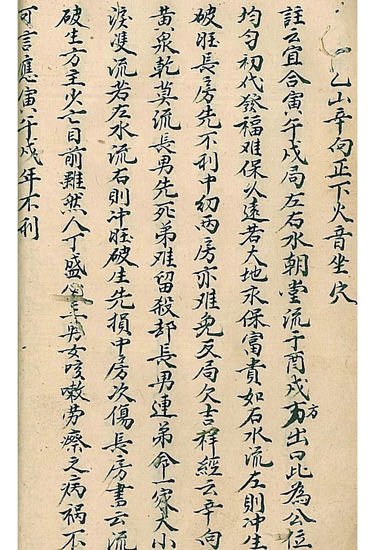 一乙山辛向正下火音坐穴
註云宜合寅午戌局左右水朝堂流于酉戌方方出口此為公位
均匀初代發福难保久遠若大地永保富貴如右水流左則冲生
破旺長房先不利中幼两房亦难免反局欠吉祥經云辛向
黄泉乾莫流長男先死弟难留殺却長男連弟命一家大小
雙流若左水流右則冲旺破生先損中房次傷長房書云流
破生方主少亡目前雖然人丁盛必主男女咳嗽劳瘵之病祸不
可言應寅午戌年不利